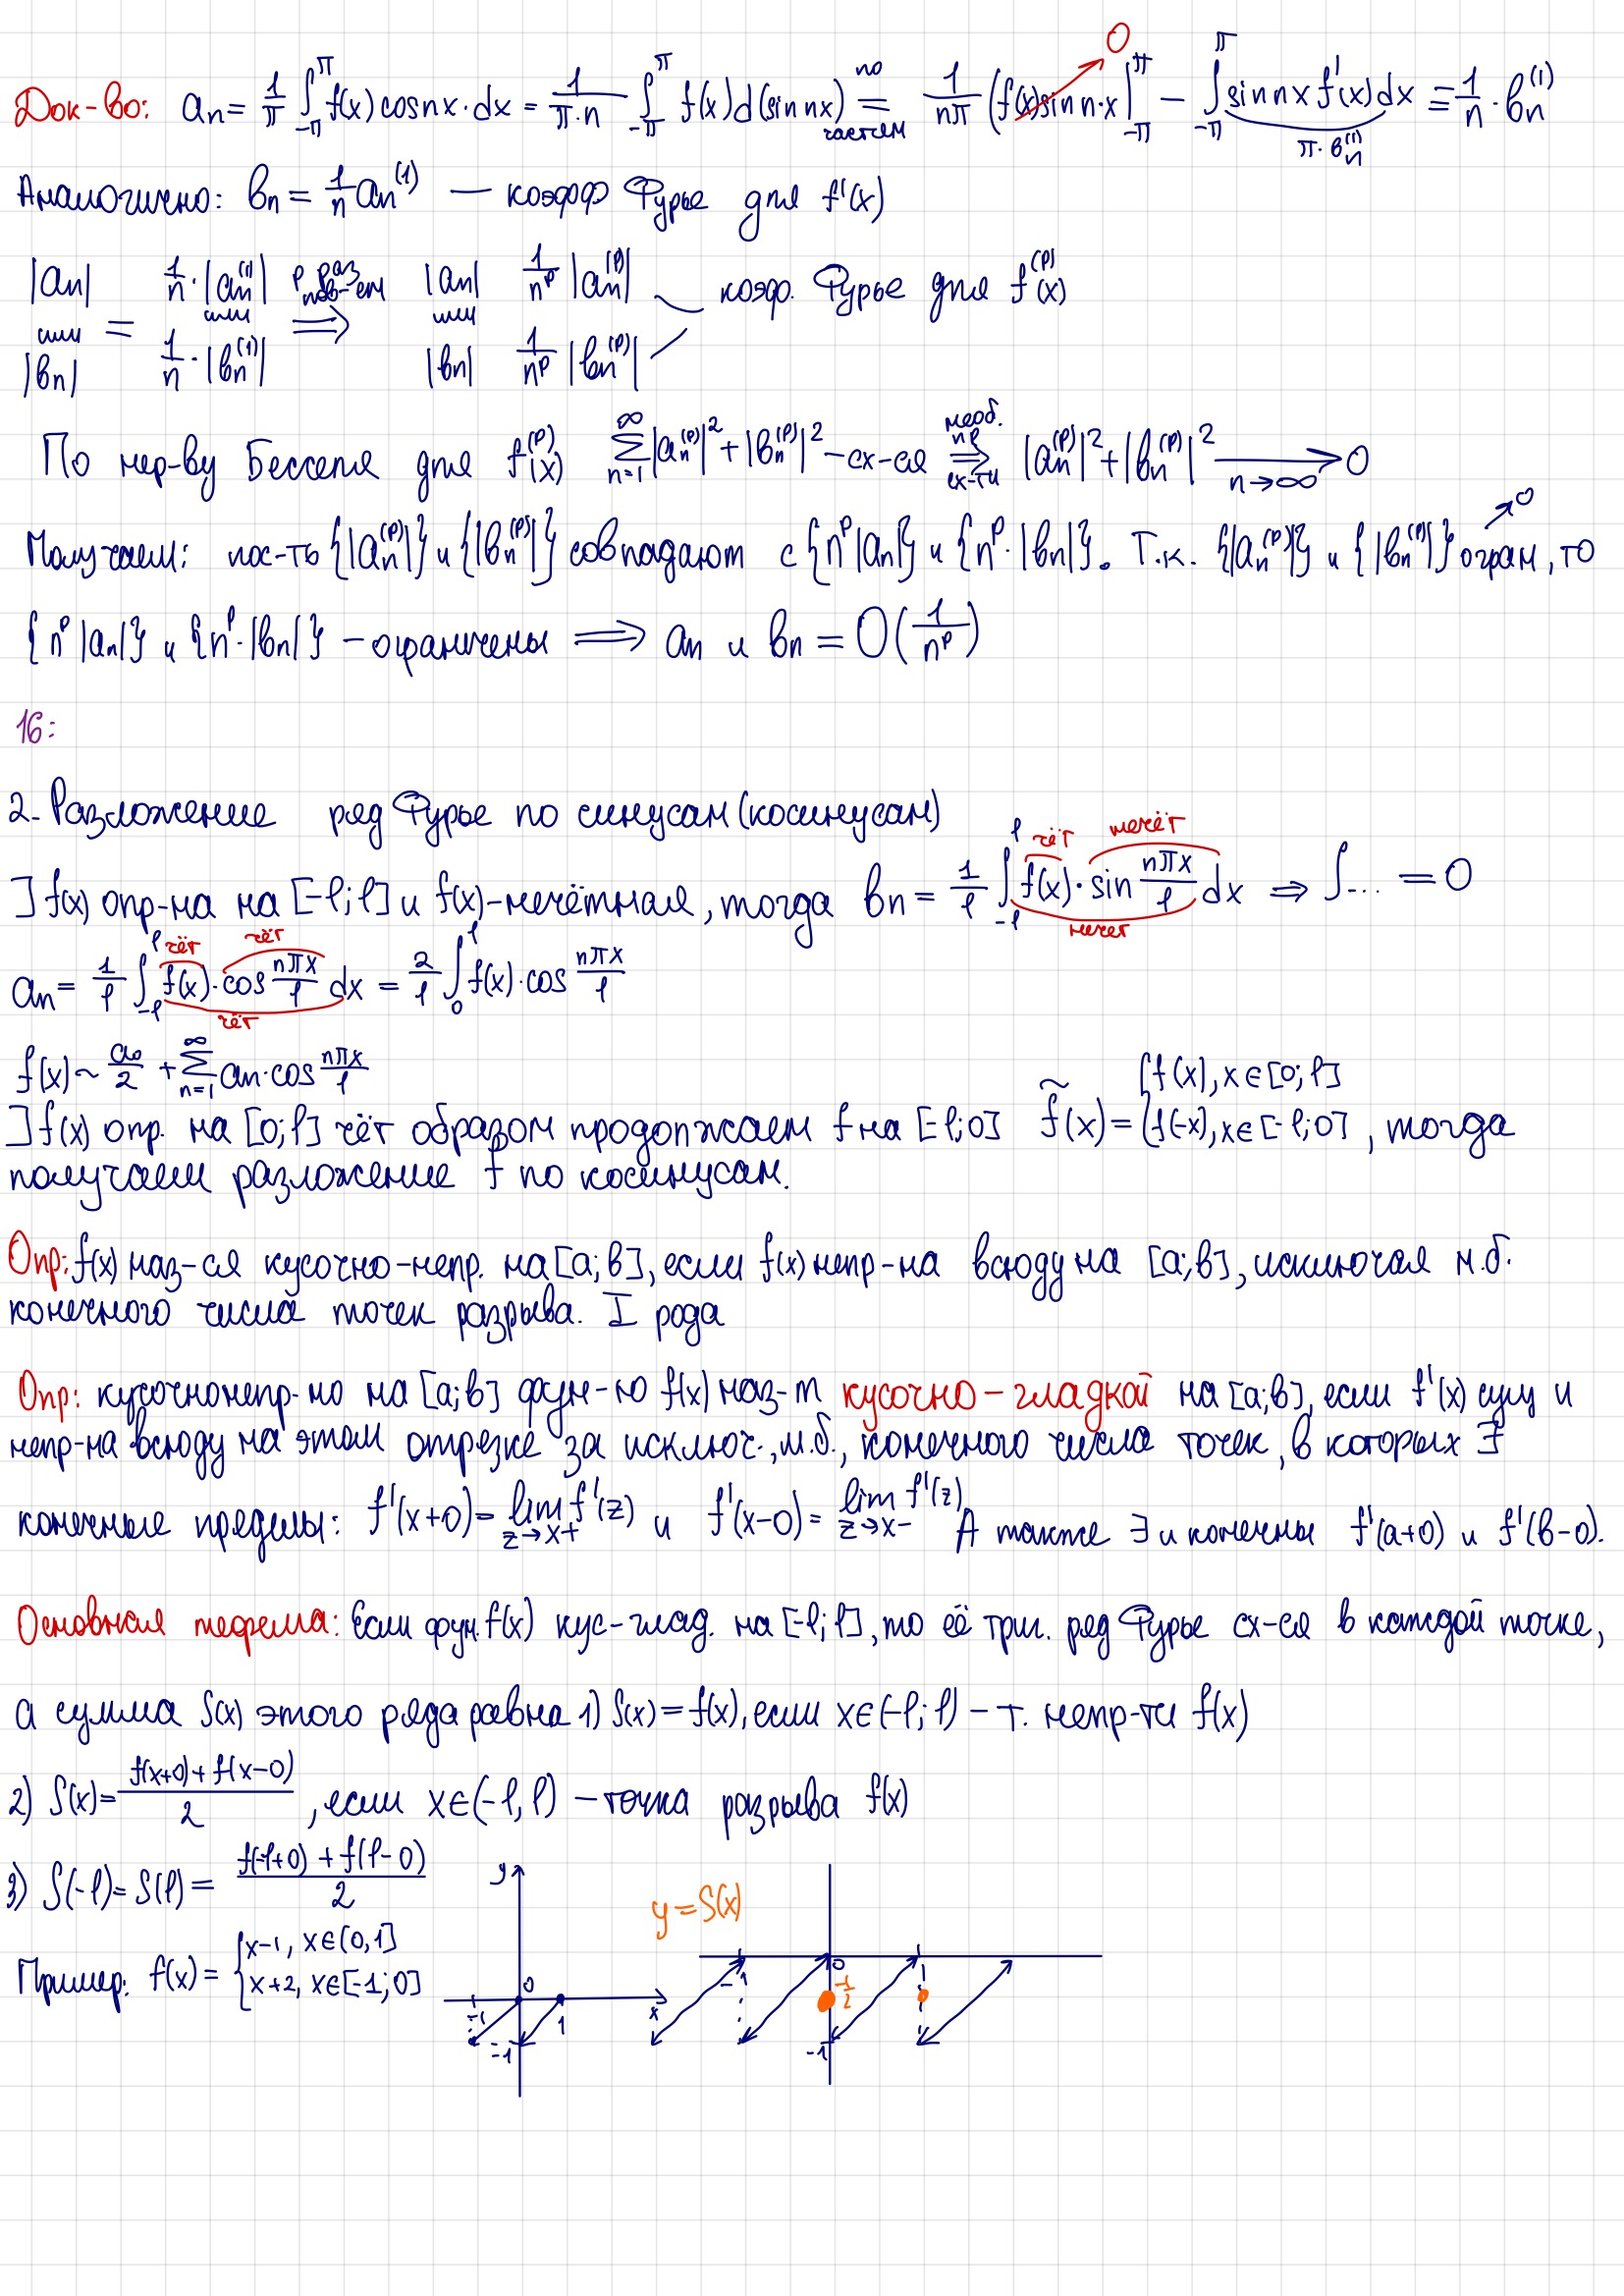 Док-во: aₙ = 1/π ∫_{-π}^{π} f(x) cosnx·dx = 1/(π·n) ∫_{-π}^{π} f(x) d(sin nx) = (по частям) 1/(nπ) (f(x) sin n·x |_{-π}^{π} → 0 − ∫_{-π}^{π} sin nx f'(x) dx = 1/n · bₙ⁽¹⁾
π·bₙ⁽¹⁾
Аналогично: bₙ = 1/n aₙ⁽¹⁾ — коэфф Фурье для f'(x)
|aₙ| или |bₙ| = 1/n·|aₙ⁽¹⁾| или 1/n·|bₙ⁽¹⁾| ⟹ |aₙ| или |bₙ| 1/nᵖ |aₙ⁽ᵖ⁾| 1/nᵖ |bₙ⁽ᵖ⁾| коэф. Фурье для f⁽ᵖ⁾(x)
По нер-ву Бесселя для f⁽ᵖ⁾(x) ∑_{n=1}^{∞} |aₙ⁽ᵖ⁾|² + |bₙ⁽ᵖ⁾|² − сх-ся ⟹ (необ. пр сх-ти) |aₙ⁽ᵖ⁾|² + |bₙ⁽ᵖ⁾|² ⟶ 0 n→∞
Получаем: пос-ть {|aₙ⁽ᵖ⁾|} и {|bₙ⁽ᵖ⁾|} совпадают с {nᵖ|aₙ|} и {nᵖ·|bₙ|}. Т.к. {|aₙ⁽ᵖ⁾|} и {|bₙ⁽ᵖ⁾|} →0 огран, то
{nᵖ|aₙ|} и {nᵖ·|bₙ|} − ограничены ⟹ aₙ и bₙ = O(1/nᵖ)
16:
2. Разложение ряд Фурье по синусам (косинусам)
] f(x) опр-на на [-l; l] и f(x)-нечётная, тогда bₙ = 1/l ∫_{-l}^{l} f(x)·sin nπx/l dx ⇒ ∫... = 0
чёт нечёт нечет
aₙ = 1/l ∫_{-l}^{l} f(x)·cos nπx/l dx = 2/l ∫_{0}^{l} f(x)·cos nπx/l
чёт чёт чёт
f(x) ~ a₀/2 + ∑_{n=1}^{∞} aₙ·cos nπx/l
] f(x) опр. на [0; l] чёт образом продолжаем f на [-l; 0] f̃(x) = { f(x), x∈[0; l] f(-x), x∈[-l; 0] , тогда
получаем разложение f по косинусам.
Опр: f(x) наз-ся кусочно-непр. на [a; b], если f(x) непр-на всюду на [a; b], исключая м.б.
конечного числа точек разрыва. I рода
Опр: кусочнонепр-ю на [a; b] фун-ю f(x) наз-т кусочно-гладкой на [a; b], если f'(x) сущ и
непр-на всюду на этом отрезке за исключ., м.б., конечного числа точек, в которых ∃
конечные пределы: f'(x+0) = lim_{z→x+} f'(z) и f'(x−0) = lim_{z→x−} f'(z) А также ∃ и конечны f'(a+0) и f'(b−0).
Основная теорема: Если фун. f(x) кус-глад. на [-l; l], то её триг. ряд Фурье сх-ся в каждой точке,
а сумма S(x) этого ряда равна 1) S(x) = f(x), если x∈(-l; l) − т. непр-ти f(x)
2) S(x) = (f(x+0) + f(x−0))/2 , если x∈(-l, l) − точка разрыва f(x)
3) S(-l) = S(l) = (f(-l+0) + f(l−0))/2
Пример: f(x) = { x−1, x∈(0,1] x+2, x∈[-1; 0]
y 0 -1 1 x -1
y = S(x) -1 0 1 -1/2 -1